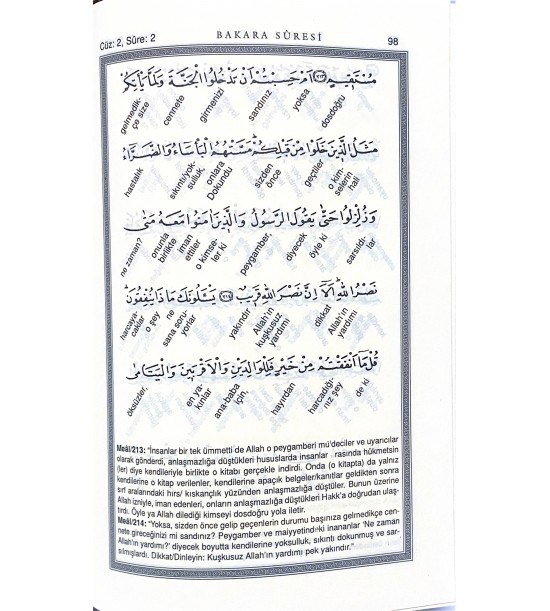 Cüz: 2, Sûre: 2 BAKARA SÛRESİ 98
مُسْتَقٖيمٍ ﴿٢١٣﴾ اَمْ حَسِبْتُمْ اَنْ تَدْخُلُوا الْجَنَّةَ وَلَمَّا يَأْتِكُمْ
dosdoğru yoksa sandınız girmenizi cennete gelmedikçe size
مَثَلُ الَّذٖينَ خَلَوْا مِنْ قَبْلِكُمْ مَسَّتْهُمُ الْبَأْسَاءُ وَالضَّرَّاءُ
o kimselerin hali geçtiler sizden önce onlara Dokundu sıkıntı/yoksulluk, hastalık
وَزُلْزِلُوا حَتّٰى يَقُولَ الرَّسُولُ وَالَّذٖينَ اٰمَنُوا مَعَهُ مَتٰى
sarsıldılar öyle ki diyecek peygamber, o kimseler ki iman ettiler onunla birlikte ne zaman?
نَصْرُ اللّٰهِ اَلَا اِنَّ نَصْرَ اللّٰهِ قَرٖيبٌ ﴿٢١٤﴾ يَسْـَٔلُونَكَ مَاذَا يُنْفِقُونَ
Allah'ın yardımı dikkat Allah'ın kuşkusuz yardımı yakındır sana soruyorlar ne o şey harcayacaklar
قُلْ مَا اَنْفَقْتُمْ مِنْ خَيْرٍ فَلِلْوَالِدَيْنِ وَالْاَقْرَبٖينَ وَالْيَتَامٰى
de ki harcadığınız şey hayırdan ana-baba için, en yakınlar öksüzler,
Meâl/213: "İnsanlar bir tek ümmetti de Allah o peygamberi mü'deciler ve uyarıcılar
olarak gönderdi, anlaşmazlığa düştükleri hususlarda insanlar rasında hükmetsin
(ler) diye kendileriyle birlikte o kitabı gerçekle indirdi. Onda (o kitapta) da yalnız
kendilerine o kitap verilenler, kendilerine apaçık belgeler/kanıtlar geldikten sonra
sırf aralarındaki hırs/ kıskançlık yüzünden anlaşmazlığa düştüler. Bunun üzerine
Allah izniyle, iman edenleri, onların anlaşmazlığa düştükleri Hakk'a doğrudan ulaş-
tırdı. Öyle ya Allah dilediği kimseyi dosdoğru yola iletir.
Meâl/214: "Yoksa, sizden önce gelip geçenlerin durumu başınıza gelmedikçe cen-
nete gireceğinizi mi sandınız? Peygamber ve maiyyetindeki inananlar 'Ne zaman
Allah'ın yardımı?' diyecek boyutta kendilerine yoksulluk, sıkıntı dokunmuş ve sar-
sılmışlardı. Dikkat/Dinleyin: Kuşkusuz Allah'ın yardımı pek yakındır."